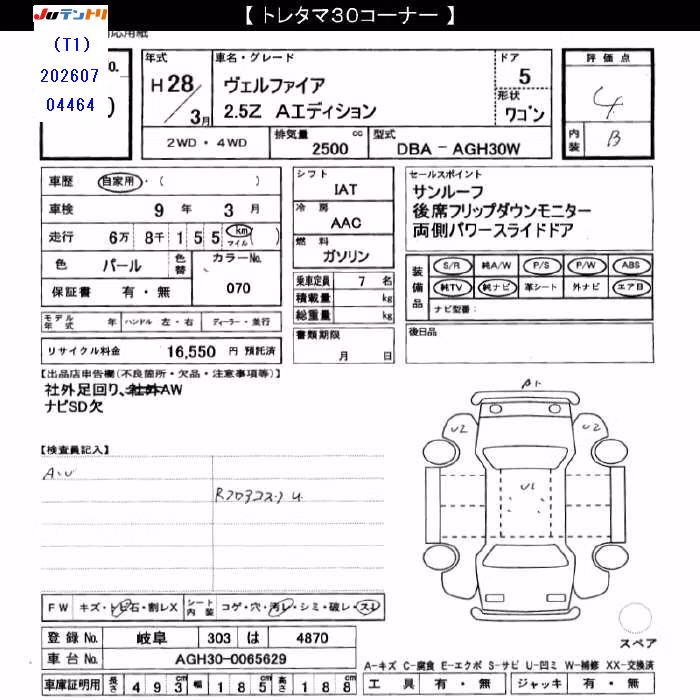 【 トレタマ３０コーナー 】
JUテントリ
(T1)
202607
04464
応用紙
o.
)
年式
H 28 / 3 月
車名・グレード
ヴェルファイア
2.5Z Aエディション
ドア
5
形状
ワゴン
評価点
4
内装
B
2WD・4WD
排気量 2500 cc
型式 DBA － AGH30W
車歴 自家用・( )
車検 9 年 3 月
走行 6万 8千 1 5 5 km マイル ( )
色 パール
色替
カラーNo.
070
保証書 有・無
シフト
IAT
冷房
AAC
燃料
ガソリン
乗車定員 7 名
積載量 kg
総重量 kg
セールスポイント
サンルーフ
後席フリップダウンモニター
両側パワースライドドア
装備品
S/R 純A/W P/S P/W ABS
純TV 純ナビ 革シート 外ナビ エアB
ナビ型番:
モデル年式 年 ハンドル 左・右 ディーラー・並行
リサイクル料金 16,550 円 預託済
書類期限
月 日
後日品
【出品店申告欄(不良箇所・欠品・注意事項等)】
社外足回り、社外AW
ナビSD欠
【検査員記入】
A-U
A1
U2
U2
U1
FW キズ・トビ石・割レX
シート内装 コゲ・穴・汚レ・シミ・破レ・スレ
登録No. 岐阜 303 は 4870
車台No. AGH30-0065629
車庫証明用 長さ 4 9 3 cm 幅 1 8 5 cm 高さ 1 8 8 cm
スペア
A-キズ C-腐食 E-エクボ S-サビ U-凹ミ W-補修 XX-交換済
工具 有・無 ジャッキ 有・無